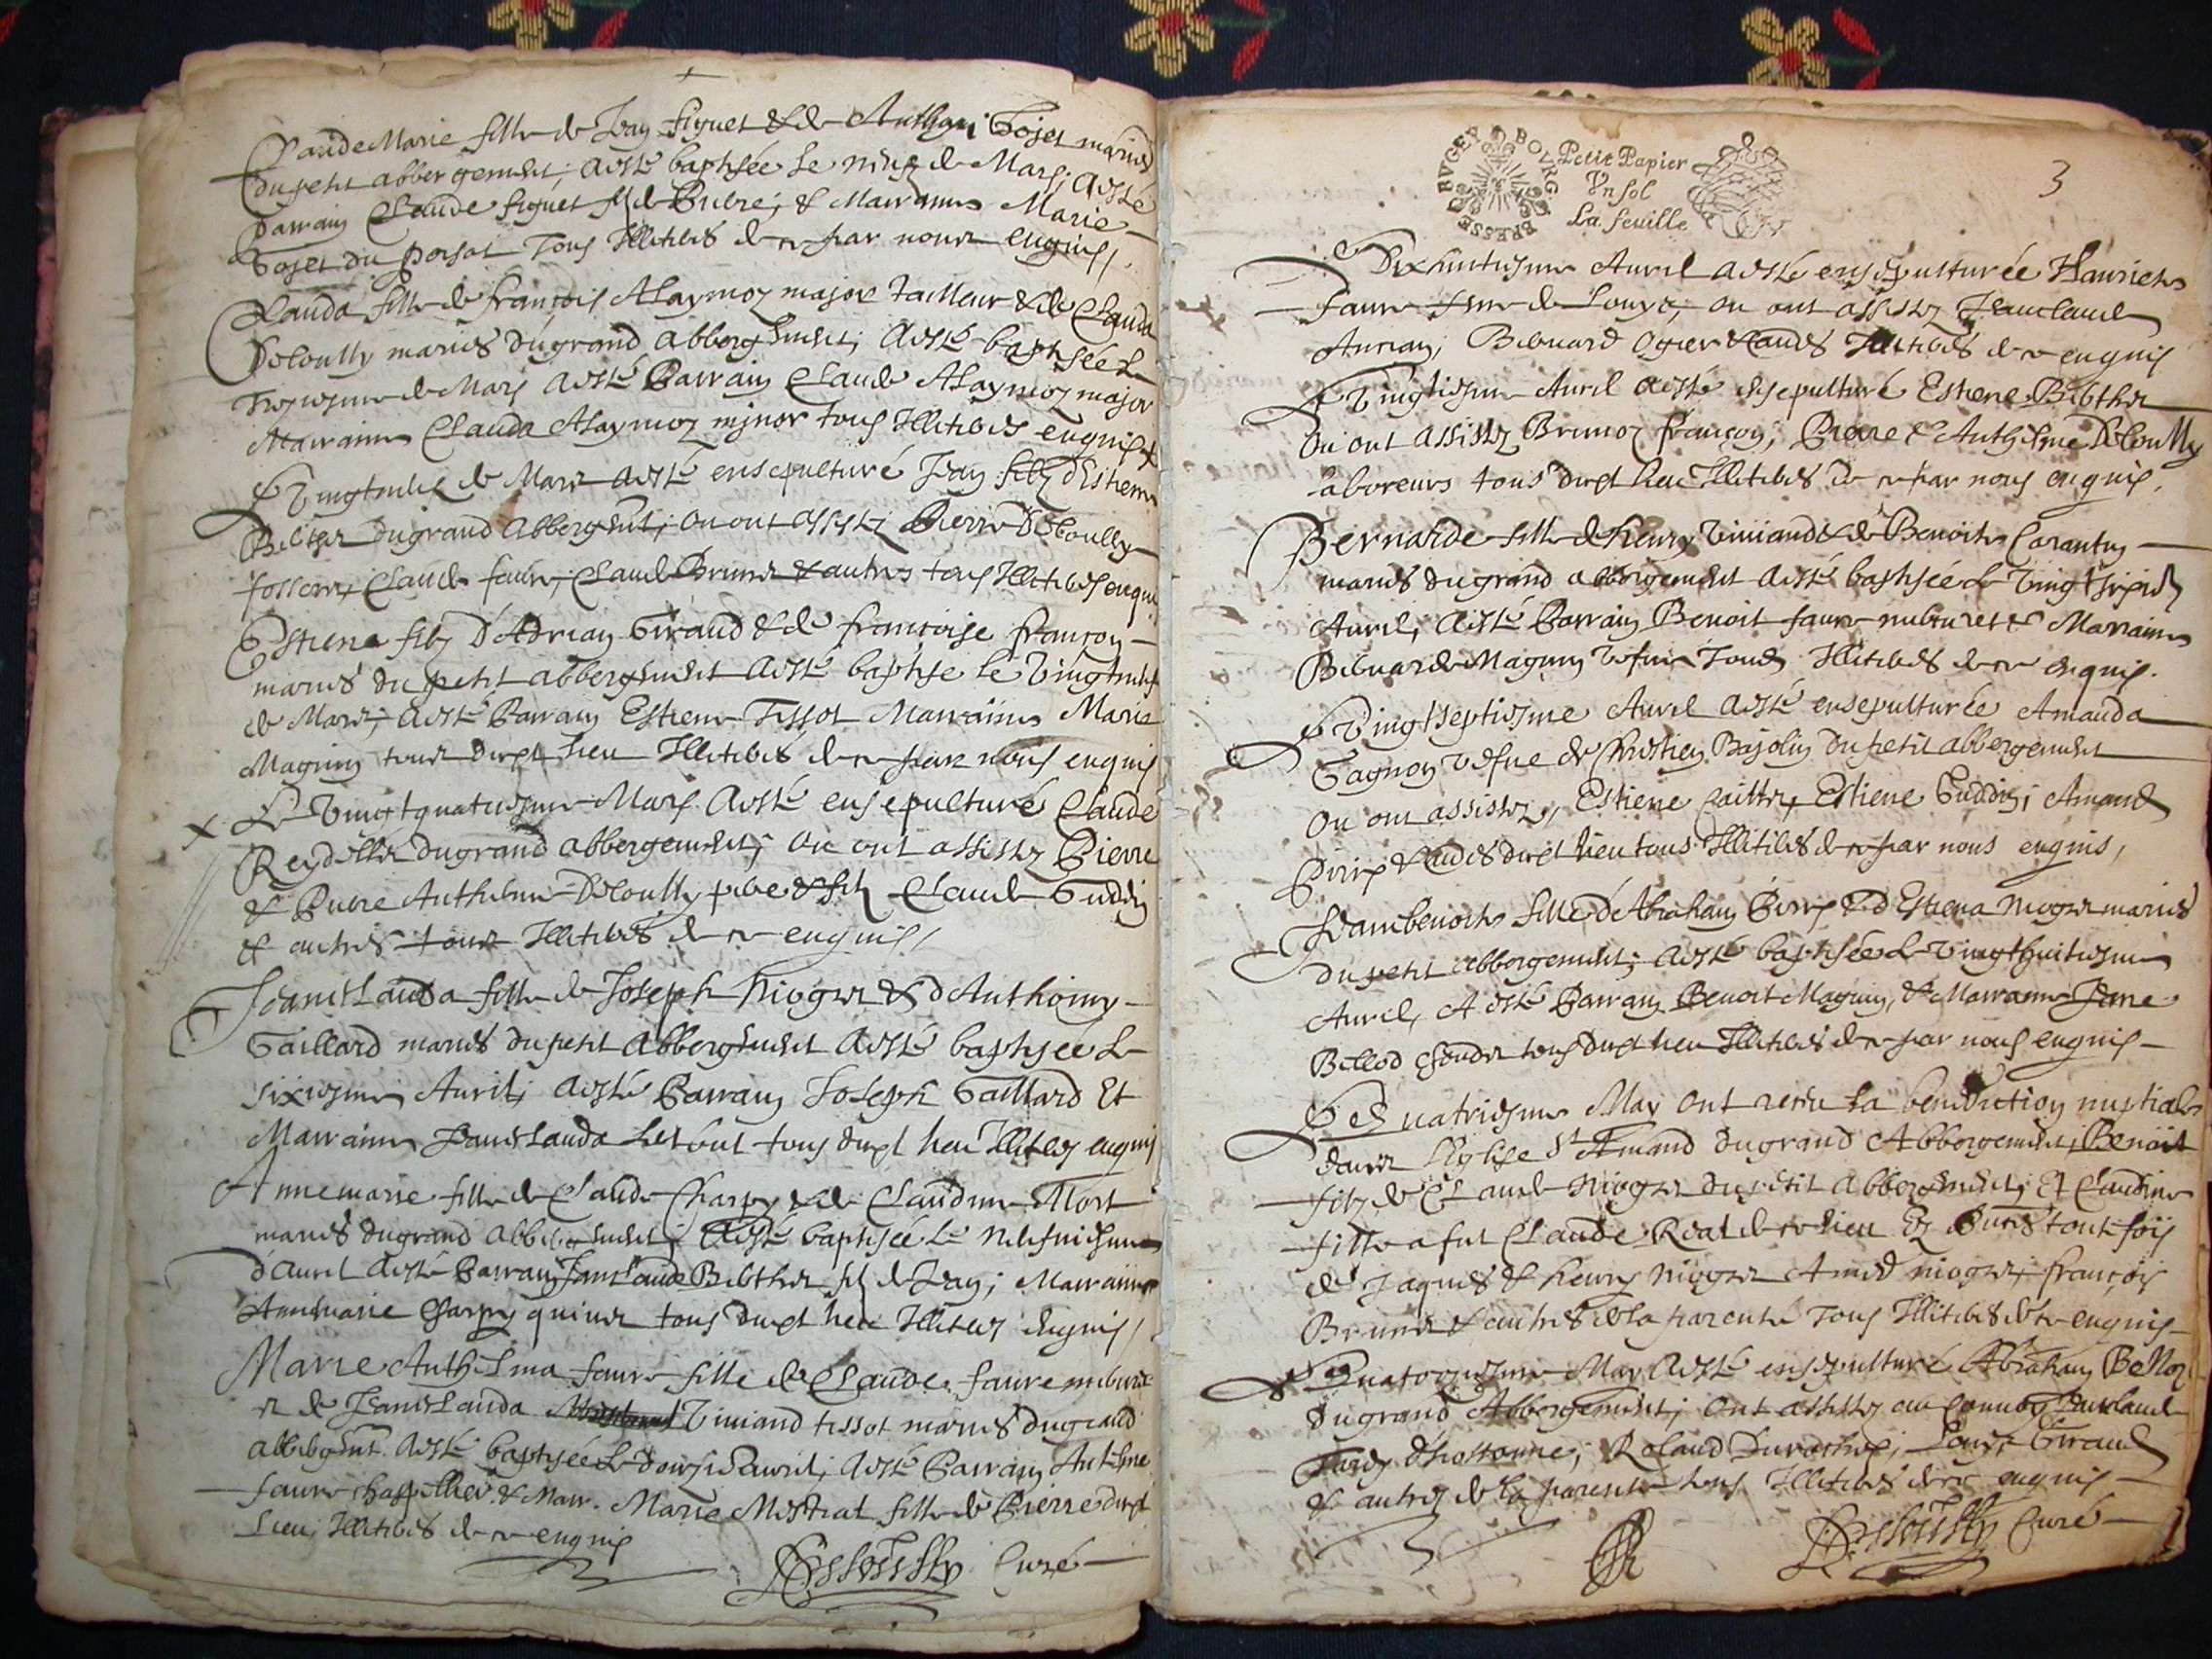 Claude Marie fille de Jean figuet & de Anthoni Gojet mariés
du petit abbergement, a esté baptisée le neuf de Mars, a esté
parrain Claude figuet fils de Pierre, & Marraine Marie
Gojet du porsat Tous Illiteres de ce par nous enquis,
Clauda fille de françois Alaymoz major Tailleur & de Clauda
Decoully mariés du grand abbergement, a esté baptisée le
de Mars a esté Parrain Claude Alaymoz major
Marraine Clauda Alaymoz minor tous Illiteres enquis
Le Vingt de Mars a esté ensepulturé Jean filz d'Estienne
Berthet du grand abbergement, ou ont assisté Pierre Decoully
Claude faure, Claude Brunet & autres tous Illiteres enquis
Estiene filz d'Adrian Giraud & de françoise françon
mariés du petit abbergement a esté baptise le Vingt
de Mars, a esté Parrain Estiene Tissot Marraine Marie
Magnin tous dudit lieu Illiteres de ce par nous enquis
x Le Vingtquatriesme Mars a esté ensepulturé Claude
Reydellet du grand abbergement, ou ont assisté Pierre
& Pierre Anthelme Decoully père & filz Claude Guddin
& autres tous Illiteres de ce enquis,
Jeanclauda fille de Joseph Niogret & d'Anthoiny
Gaillard mariés du petit Abbergement a esté baptisée le
sixiesme Avril, a esté Parrain Joseph Gaillard Et
Marraine Janclauda tous dudit lieu Illiteres enquis
Annemarie fille de Claude Charpy & de Claudine Mort
mariés du grand abbergement, a esté baptisée le neufviesme
d'Avril a esté Parrain Janclaude Berthet filz de Jean, Marraine
Annemarie Charpy tous dudit lieu Illiteres enquis,
Marie Anthelma faure fille de Claude faure
& de Jeanclauda Viviand tissot mariés du grand
abbergement a esté baptisée le d'avril, a esté Parrain Anthelme
faure chappellier & Marr. Marie Mistrat fille de Pierre dudit
Lieu, Illiteres de ce enquis
Decoully Curé
BRESSE BVGEY BOVRG
Petit Papier
Vn sol
La feuille
3
Dixhuitiesme Avril a esté ensepulturée Hanriete
faure feme de Louys, ou ont assisté Jeanclaude
Ancian, Bernard Ogier & autres Illiteres de ce enquis
Le Vingtiesme Avril a esté ensepulturé Estiene Berthet
Ou ont assisté Brunoz françon, Pierre & Anthelme Decoully
laboreurs tous dudit lieu Illiteres de ce par nous enquis,
Bernarde fille de henry Viviand & de Benoite Carantin
mariés du grand abbergement a esté baptisée le Vingt
Avril, a esté Parrain Benoit faure & Marraine
Bernarde Magnin Tous Illiteres de ce enquis.
Le Vingtseptiesme Avril a esté ensepulturée Amanda
Gagnon vefve de Christien Bajolin du petit abbergement
Ou ont assisté, Estiene Estiene Guddin, Amand
Pirip & autres dudit lieu tous Illiteres de ce par nous enquis,
Jeanbenoite fille d'Abraham Pirip & d'Estiena Niogret mariés
du petit abbergement, a esté baptisée le Vingthuitiesme
Avril, A esté Parrain Benoit Magnin, & Marraine Jane
Billod tous dudit lieu Illiteres de ce par nous enquis
Le Quatriesme May ont receu la benediction nuptiale
dans l'église St Amand du grand Abbergement, Benoit
filz de Claude Niogret du petit abbergement, Et Claudine
fille a fut Claude Reat de ce lieu
de Jaques & henry Niogret Amed niogret, françois
Brunet & autres de la parenté Tous Illiteres de ce enquis
Le Quatorziesme May a esté ensepulturé Abraham Belloz
du grand Abbergement, Ont assisté au Janclaude
Tardy d'hostonne, Roland Louys Giraud
& autres de la parenté tous Illiteres de ce enquis
Decoully Curé